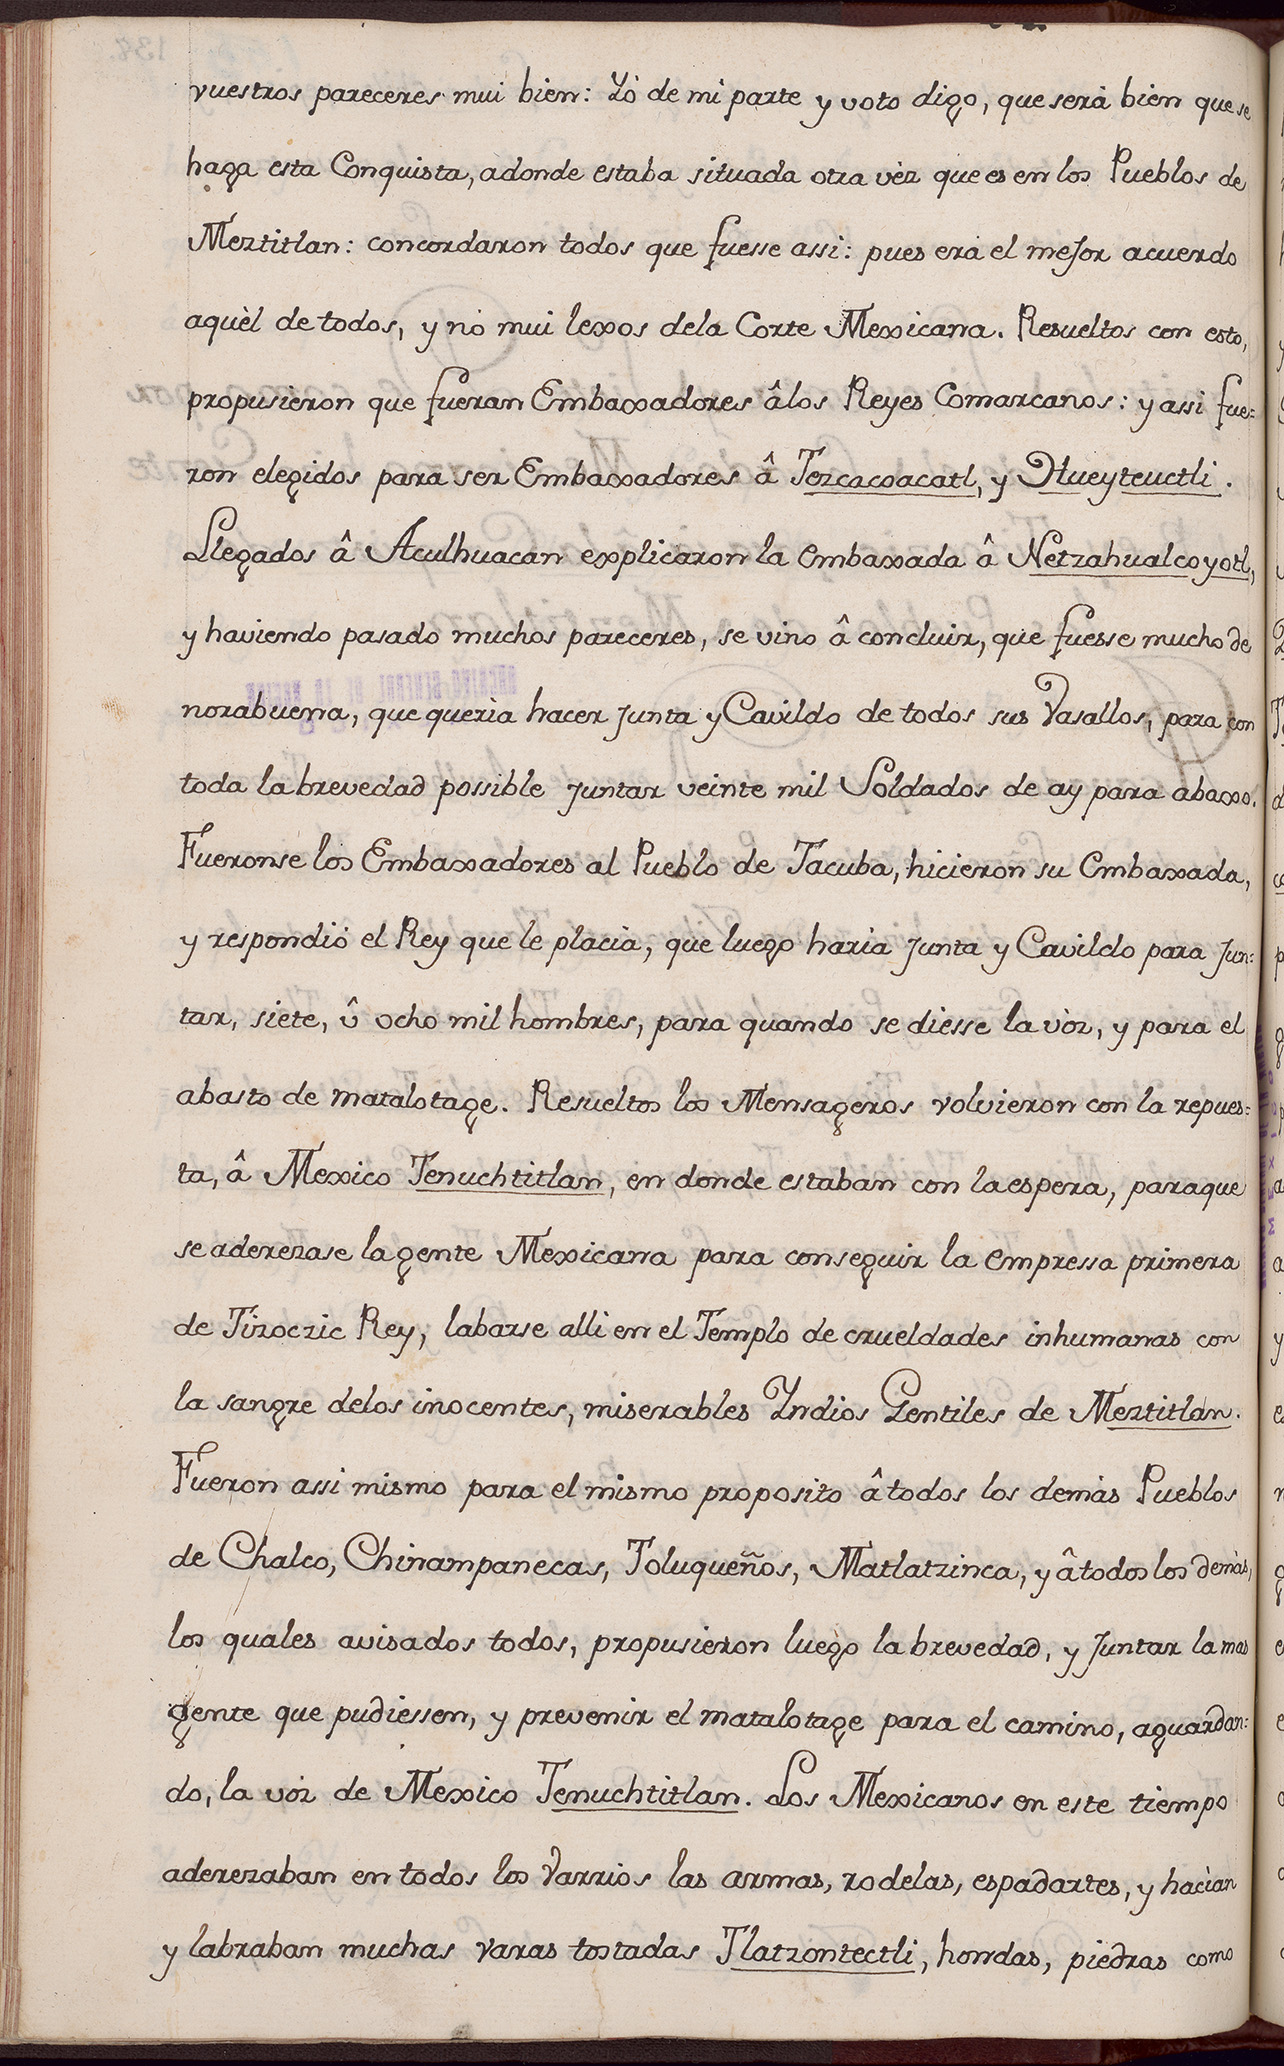 vuestros pareceres mui bien: Yò de mi parte y voto digo, que serà bien que se
haga esta Conquista, adonde estaba situada otra vèz que es en los Pueblos de
Meztitlan: concordaron todos que fuesse assi: pues era el mejor acuerdo
aquèl de todos, y nò mui lexos dela Corte Mexicana. Resueltos con esto,
propusieron que fueran Embaxadores âlos Reyes Comarcanos: y assi fue=
ron elegidos para ser Embaxadores â Tezcacoacatl, y Hueyteuctli.
Llegados â Aculhuacan explicaron la embaxada â Netzahualcoyotl,
y haviendo pasado muchos pareceres, se vino â concluir, que fuesse mucho de
norabuena, que querìa hacer junta y Cavildo de todos sus Vasallos, para con
toda la brevedad possible juntar veinte mil Soldados de ay para abaxo.
Fueronse los Embaxadores al Pueblo de Tacuba, hicieron su Embaxada,
y respondiò el Rey que le placìa, que luego harìa junta y Cavildo para jun=
tar, siete, û ocho mil hombres, para quando se diesse la vòz, y para el
abasto de matalotage. Resueltos los Mensageros volvieron con la repues=
ta, â Mexico Tenuchtitlan, en donde estaban con la espera, paraque
se aderezase la gente Mexicana para conseguir la empressa primera
de Tizoczic Rey, labarse alli en el Templo de crueldades inhumanas con
la sangre delos inocentes, miserables Yndios Gentiles de Meztitlan.
Fueron assi mismo para el mismo proposito â todos los demàs Pueblos
de Chalco, Chinampanecas, Toluqueños, Matlatzinca, y â todos los demàs,
los quales avisados todos, propusieron luego la brevedad, y juntar la mas
gente que pudiessen, y prevenir el matalotage para el camino, aguardan=
do, la vòz de Mexico Tenuchtitlan. Los Mexicanos en este tiempo
aderezaban en todos los Varrios las armas, rodelas, espadartes, y hacìan
y labraban muchas varas tostadas Tlatzontectli, hondas, piedras como